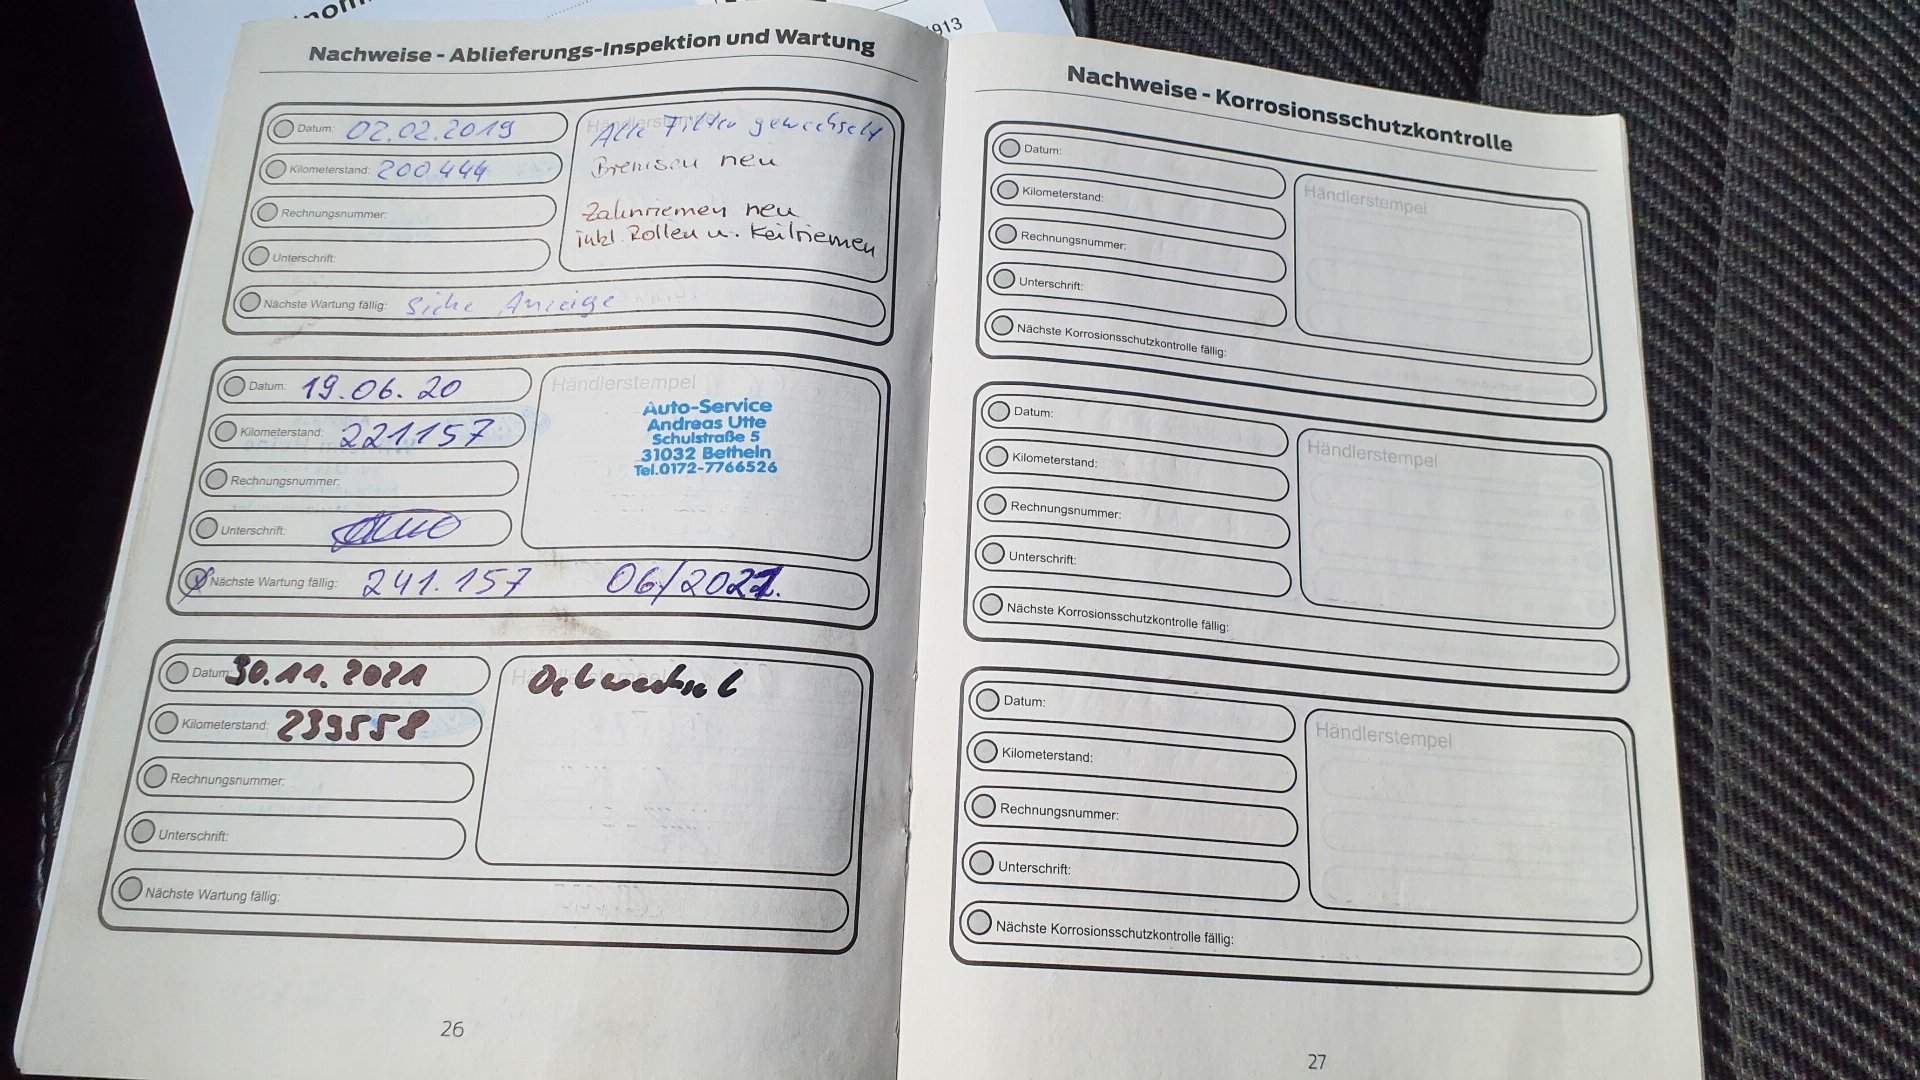 913
Nachweise - Ablieferungs-Inspektion und Wartung
Datum: 02.02.2019
Kilometerstand: 200444
Rechnungsnummer:
Unterschrift:
Händlerstempel
Alle Filter gewechselt
Bremsen neu
Zahnriemen neu
inkl. Rollen u. Keilriemen
Nächste Wartung fällig: Siehe Anzeige
Datum: 19.06.20
Kilometerstand: 221157
Rechnungsnummer:
Unterschrift:
Händlerstempel
Auto-Service
Andreas Utte
Schulstraße 5
31032 Betheln
Tel.0172-7766526
Nächste Wartung fällig: 241.157 06/2021.
Datum: 30.11.2021
Kilometerstand: 239558
Rechnungsnummer:
Unterschrift:
Händlerstempel
Oelwechsel
Nächste Wartung fällig:
26
Nachweise - Korrosionsschutzkontrolle
Datum:
Kilometerstand:
Rechnungsnummer:
Unterschrift:
Händlerstempel
Nächste Korrosionsschutzkontrolle fällig:
Datum:
Kilometerstand:
Rechnungsnummer:
Unterschrift:
Händlerstempel
Nächste Korrosionsschutzkontrolle fällig:
Datum:
Kilometerstand:
Rechnungsnummer:
Unterschrift:
Händlerstempel
Nächste Korrosionsschutzkontrolle fällig:
27